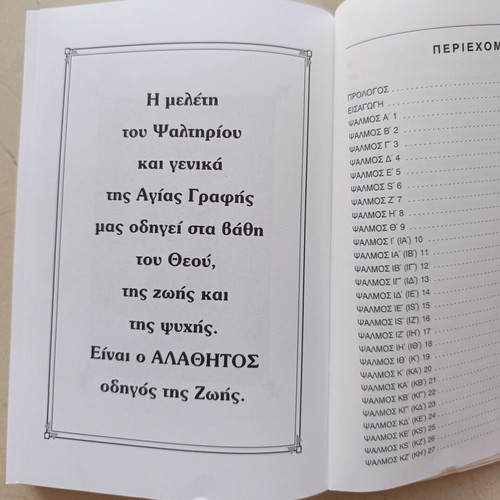 Η μελέτη
του Ψαλτηρίου
και γενικά
της Αγίας Γραφής
μας οδηγεί στα βάθη
του Θεού,
της ζωής και
της ψυχής.
Είναι ο ΑΛΑΘΗΤΟΣ
οδηγός της Ζωής.
ΠΕΡΙΕΧΟΜ
ΠΡΟΛΟΓΟΣ
ΕΙΣΑΓΩΓΗ
ΨΑΛΜΟΣ Α΄ 1
ΨΑΛΜΟΣ Β΄ 2
ΨΑΛΜΟΣ Γ΄ 3
ΨΑΛΜΟΣ Δ΄ 4
ΨΑΛΜΟΣ Ε΄ 5
ΨΑΛΜΟΣ S΄ 6
ΨΑΛΜΟΣ Ζ΄ 7
ΨΑΛΜΟΣ Η΄ 8
ΨΑΛΜΟΣ Θ΄ 9
ΨΑΛΜΟΣ Ι΄ (ΙΑ΄) 10
ΨΑΛΜΟΣ ΙΑ΄ (ΙΒ΄) 11
ΨΑΛΜΟΣ ΙΒ΄ (ΙΓ΄) 12
ΨΑΛΜΟΣ ΙΓ΄ (ΙΔ΄) 13
ΨΑΛΜΟΣ ΙΔ΄ (ΙΕ΄) 14
ΨΑΛΜΟΣ ΙΕ΄ (ΙS΄) 15
ΨΑΛΜΟΣ ΙS΄ (ΙΖ΄) 16
ΨΑΛΜΟΣ ΙΖ΄ (ΙΗ΄) 17
ΨΑΛΜΟΣ ΙΗ΄ (ΙΘ΄) 18
ΨΑΛΜΟΣ ΙΘ΄ (Κ΄) 19
ΨΑΛΜΟΣ Κ΄ (ΚΑ΄) 20
ΨΑΛΜΟΣ ΚΑ΄ (ΚΒ΄) 21
ΨΑΛΜΟΣ ΚΒ΄ (ΚΓ΄) 22
ΨΑΛΜΟΣ ΚΓ΄ (ΚΔ΄) 23
ΨΑΛΜΟΣ ΚΔ΄ (ΚΕ΄) 24
ΨΑΛΜΟΣ ΚΕ΄ (ΚS΄) 25
ΨΑΛΜΟΣ ΚS΄ (ΚΖ΄) 26
ΨΑΛΜΟΣ ΚΖ΄ (ΚΗ΄) 27